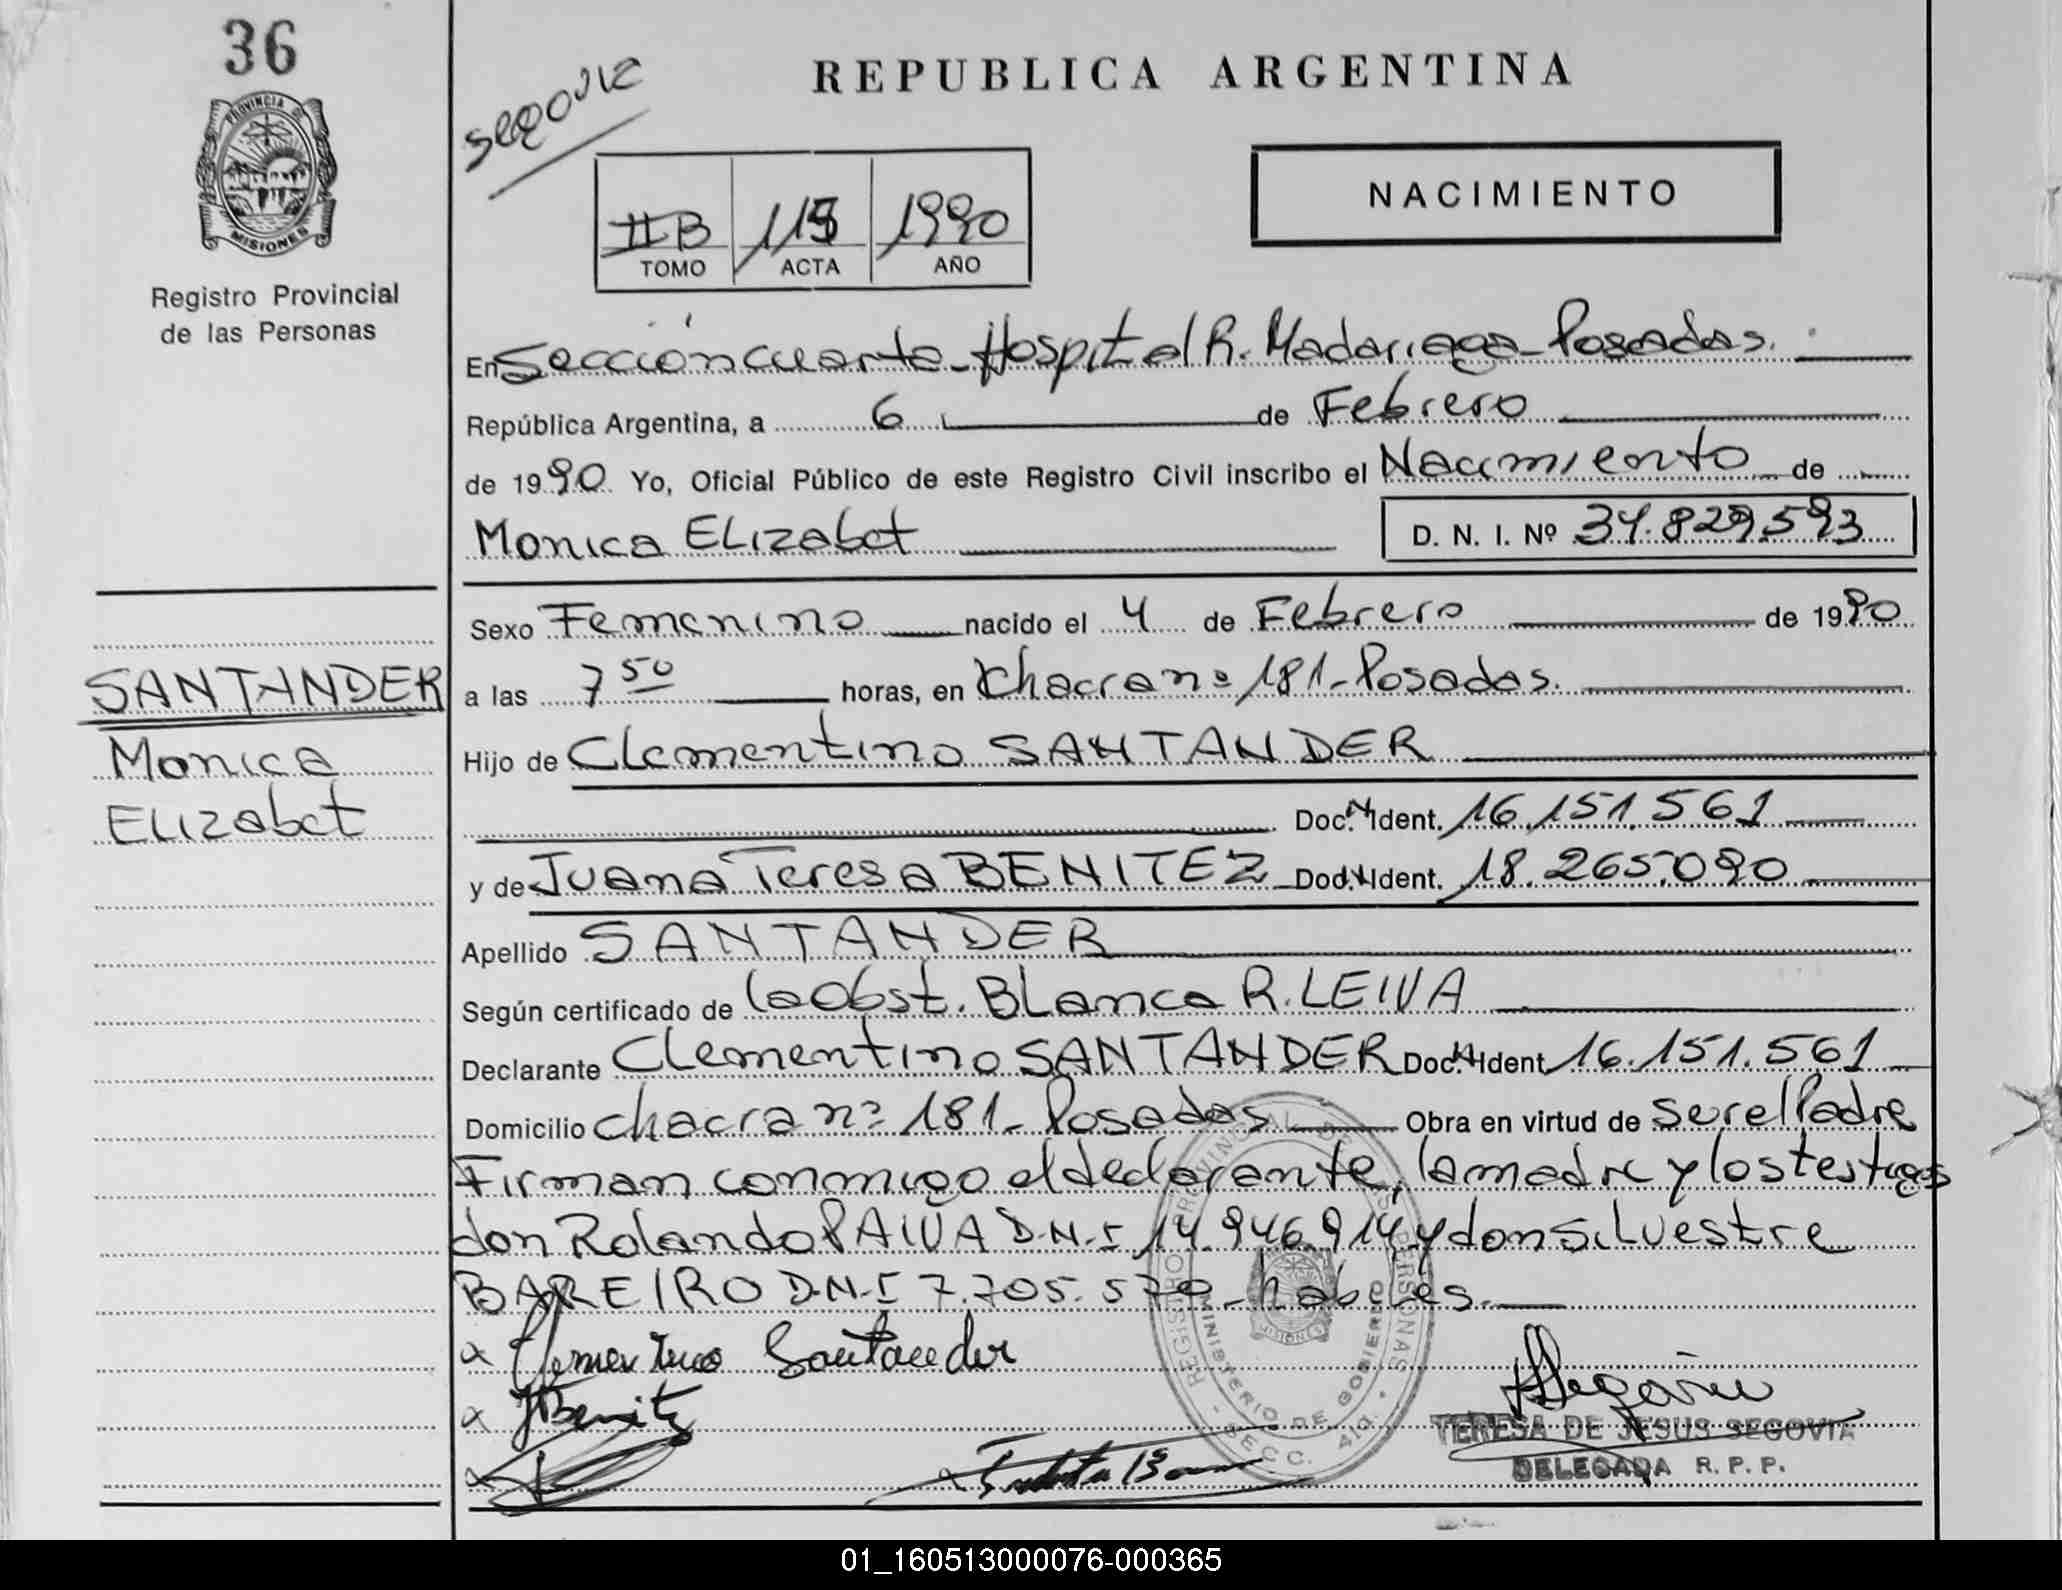 36
REPUBLICA ARGENTINA
PROVINCIA DE
MISIONES
Registro Provincial
de las Personas
NACIMIENTO
IIB 115 1990
TOMO ACTA AÑO
En Sección cuarta - Hospital R. Madariaga - Posadas.
República Argentina, a 6 de Febrero
de 1990 Yo, Oficial Público de este Registro Civil inscribo el Nacimiento de
Monica ELizabet D. N. I. Nº 34.829.593
Sexo Femenino nacido el 4 de Febrero de 1990
SANTANDER
a las 7 50 horas, en Chacra nº 181 - Posadas.
Monica
Hijo de Clementino SANTANDER
ELizabet
Doc. N. Ident. 16.151.561
y de Juana Teresa BENITEZ Doc. N. Ident. 18.265.090
Apellido SANTANDER
Según certificado de la Obst. BLanca R. LEIVA
Declarante CLementino SANTANDER Doc. N. Ident. 16.151.561
Domicilio chacra nº 181 - Posadas Obra en virtud de ser el Padre
Firman conmigo el declarante, la madre y los testigos
don Rolando PAIVA D.N.I 14.946.914 y don SiLvestre
BAREIRO D.N.I 7.705.570 - habiles.
x Clementino Santander
x JBenitz
Segovia
TERESA DE JESUS SEGOVIA
DELEGADA R. P. P.
REGISTRO PROVINCIAL DE LAS PERSONAS
MINISTERIO DE GOBIERNO
SECC. 4ta
MISIONES
01_160513000076-000365